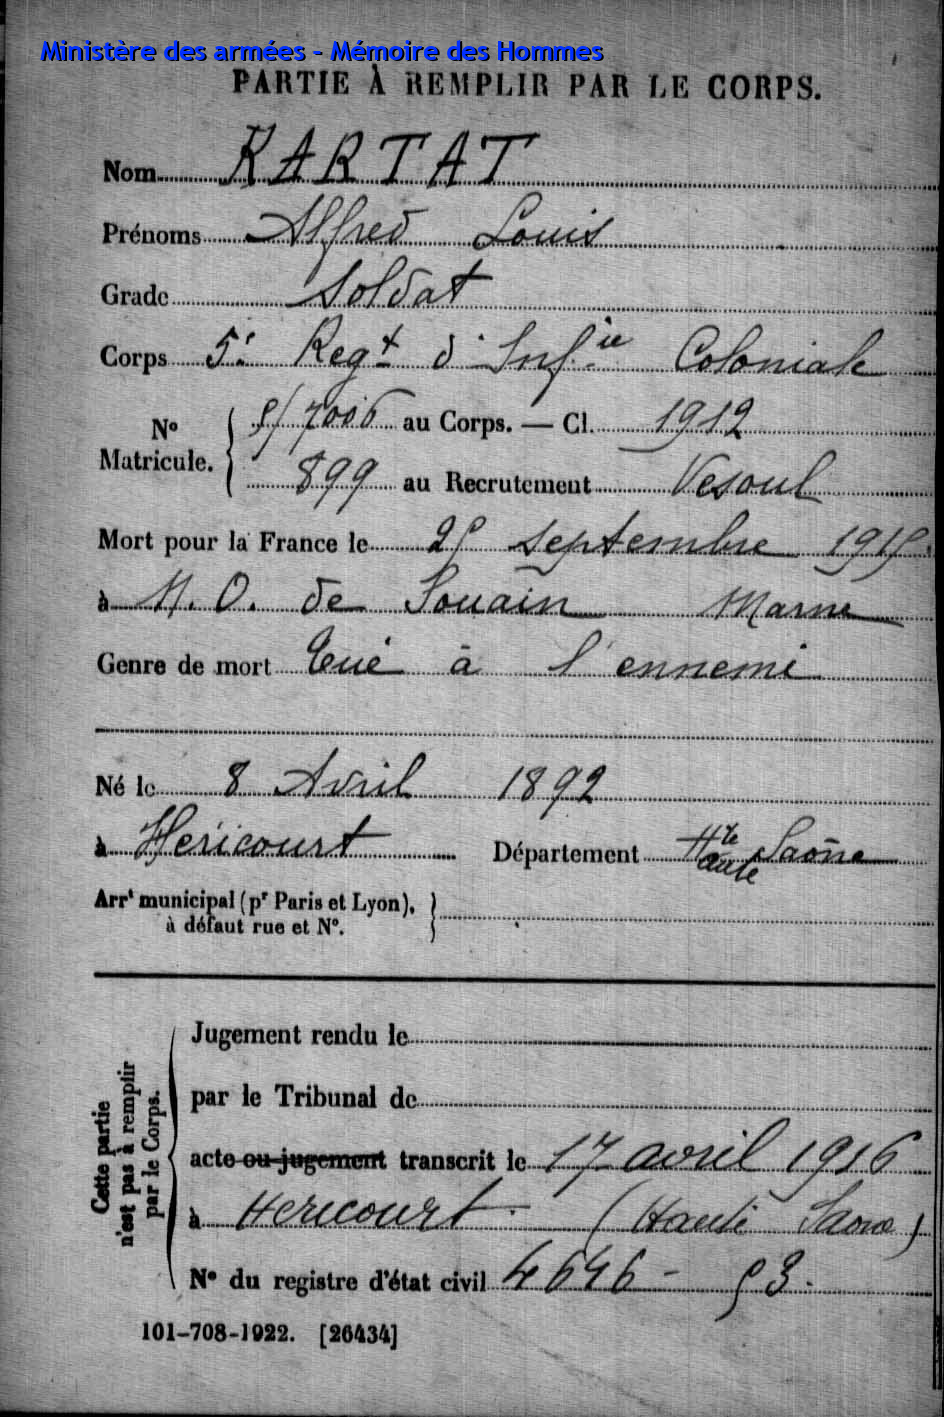 Ministère des armées - Mémoire des Hommes
PARTIE À REMPLIR PAR LE CORPS.
Nom KARTAT
Prénoms Alfred Louis
Grade Soldat
Corps 5e Regt d'Infie Coloniale
No Matricule. { 5/7006 au Corps. — Cl. 1912
899 au Recrutement Vesoul
Mort pour la France le 25 septembre 1915.
à N. O. de Souain Marne
Genre de mort Tué à l'ennemi
Né le 8 Avril 1892
à Héricourt Département Hte Haute Saône
Arrt municipal (pr Paris et Lyon),
à défaut rue et No.
Cette partie
n'est pas à remplir
par le Corps.
Jugement rendu le
par le Tribunal de
acte ou jugement transcrit le 17 avril 1916
à Hericourt (Haute Saone)
No du registre d'état civil 4646 - 53.
101-708-1922. [26434]